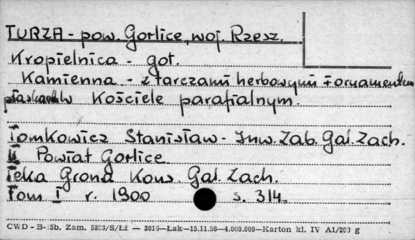 TURZA - pow. Gorlice, woj. Rzesz.
Kropielnica - got.
Kamienna - z tarczami herbowymi i ornamentem
płaskim w Kościele parafialnym.
Tomkowicz Stanisław - Inw. Zab. Gal. Zach.
II Powiat Gorlice
Teka Grona Kons. Gal. Zach.
Tom I r. 1900 s. 314.
CWD - B- 5b. Zam. /S/Łż — — Łak—15.11.58—4.000.000—Karton kl. IV A1/200 g